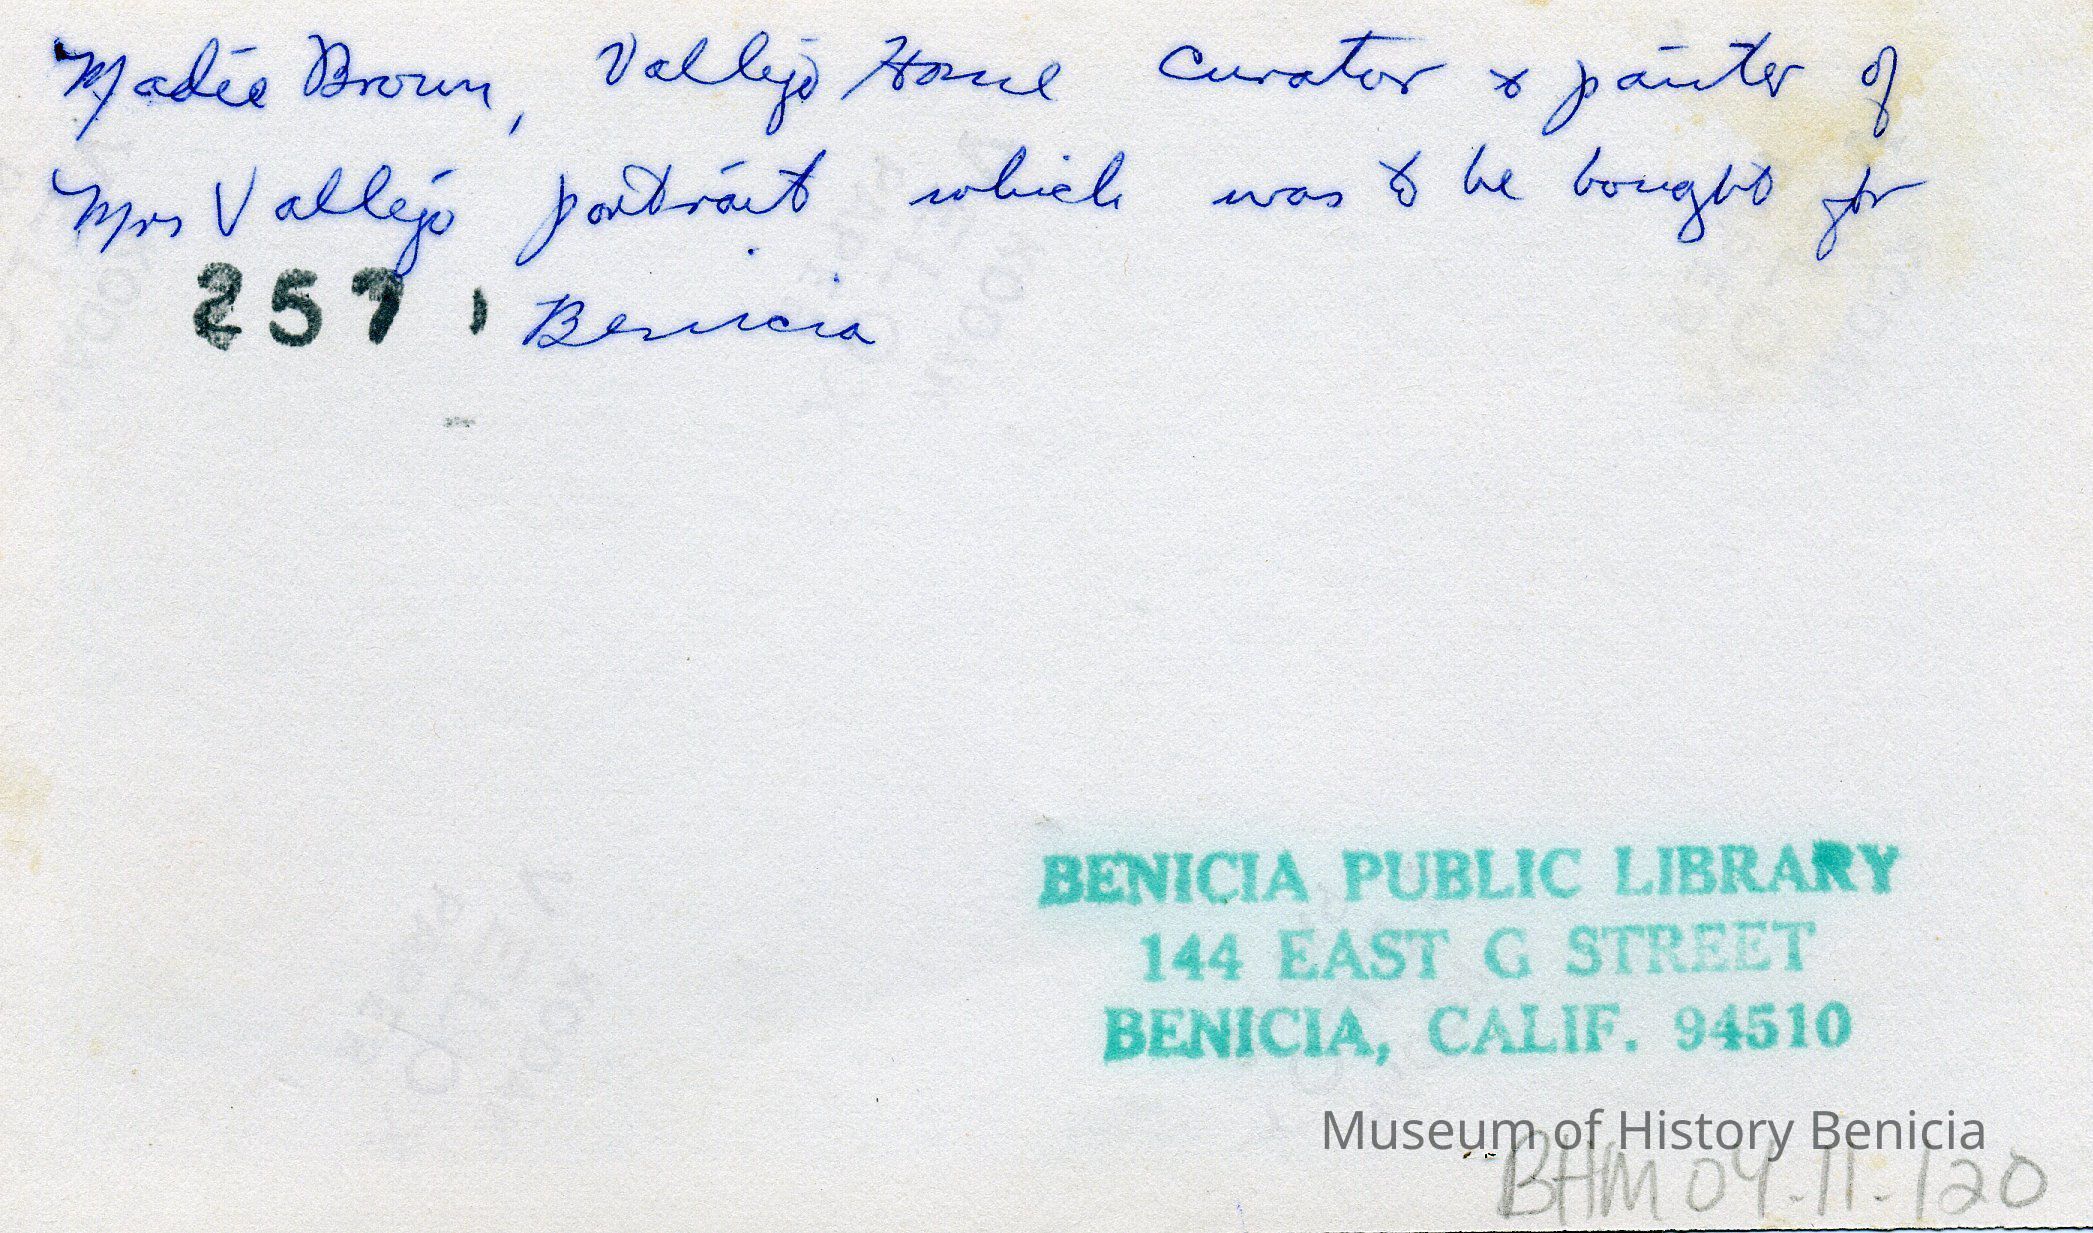 Madie Brown, Vallejo Home Curator & painter of
Mrs Vallejo portrait which was to be bought for
257 Benicia
BENICIA PUBLIC LIBRARY
144 EAST G STREET
BENICIA, CALIF. 94510
Museum of History Benicia
BHM 04-11-120